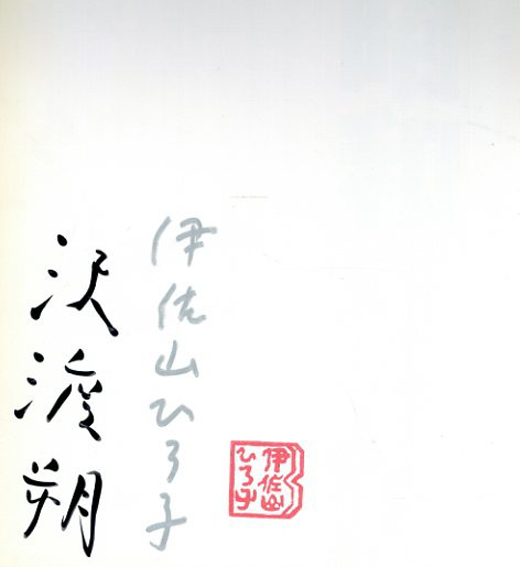 伊佐山ひろ子
沢渡朔
伊佐山
ひろ子